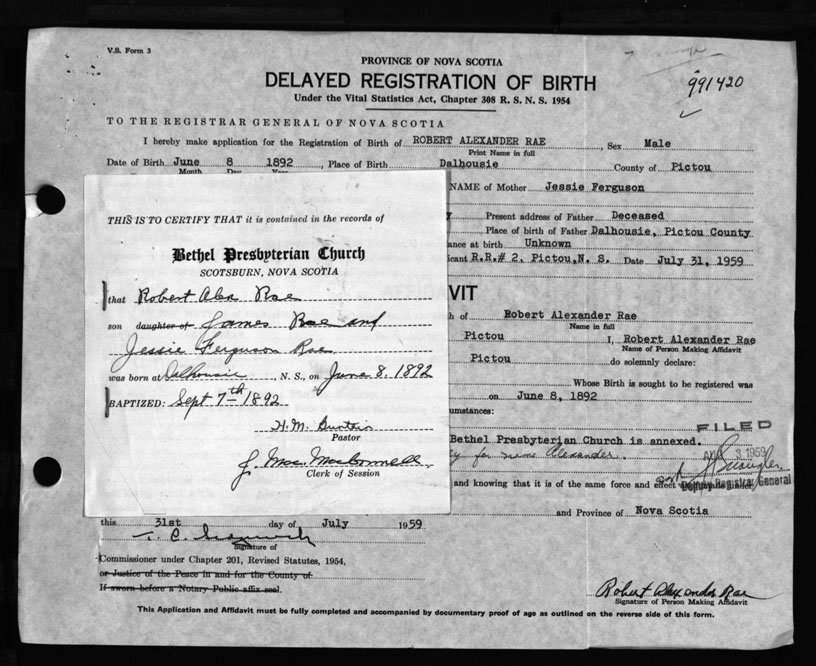 V.S. Form 3
PROVINCE OF NOVA SCOTIA
DELAYED REGISTRATION OF BIRTH
991420
Under the Vital Statistics Act, Chapter 308 R. S. N. S. 1954
TO THE REGISTRAR GENERAL OF NOVA SCOTIA
I hereby make application for the Registration of Birth of ROBERT ALEXANDER RAE, Sex Male
Print Name in full
Date of Birth June 8 1892, Place of Birth Dalhousie County of Pictou
Month Day
NAME of Mother Jessie Ferguson
Present address of Father Deceased
Place of birth of Father Dalhousie, Pictou County
ance at birth Unknown
icant R.R.# 2, Pictou, N. S. Date July 31, 1959
VIT
h of Robert Alexander Rae
Name in full
Pictou I, Robert Alexander Rae
Name of Person Making Affidavit
Pictou do solemnly declare:
Whose Birth is sought to be registered was
on June 8, 1892
umstances:
FILED
Bethel Presbyterian Church is annexed.
3 1959
for Alexander.
and knowing that it is of the same force and effect
Deputy Registrar General
and Province of Nova Scotia
THIS IS TO CERTIFY THAT it is contained in the records of
Bethel Presbyterian Church
SCOTSBURN, NOVA SCOTIA
that Robert Alex Rae
son daughter of James Rae and
Jessie Ferguson Rae
was born at Dalhousie, N. S., on June 8, 1892
BAPTIZED: Sept 7th 1892
H. M.
Pastor
J. Mac
Clerk of Session
this 31st day of July 1959
Signature of
Commissioner under Chapter 201, Revised Statutes, 1954,
or Justice of the Peace in and for the County of
If sworn before a Notary Public affix seal.
Robert Alexander Rae
Signature of Person Making Affidavit
This Application and Affidavit must be fully completed and accompanied by documentary proof of age as outlined on the reverse side of this form.